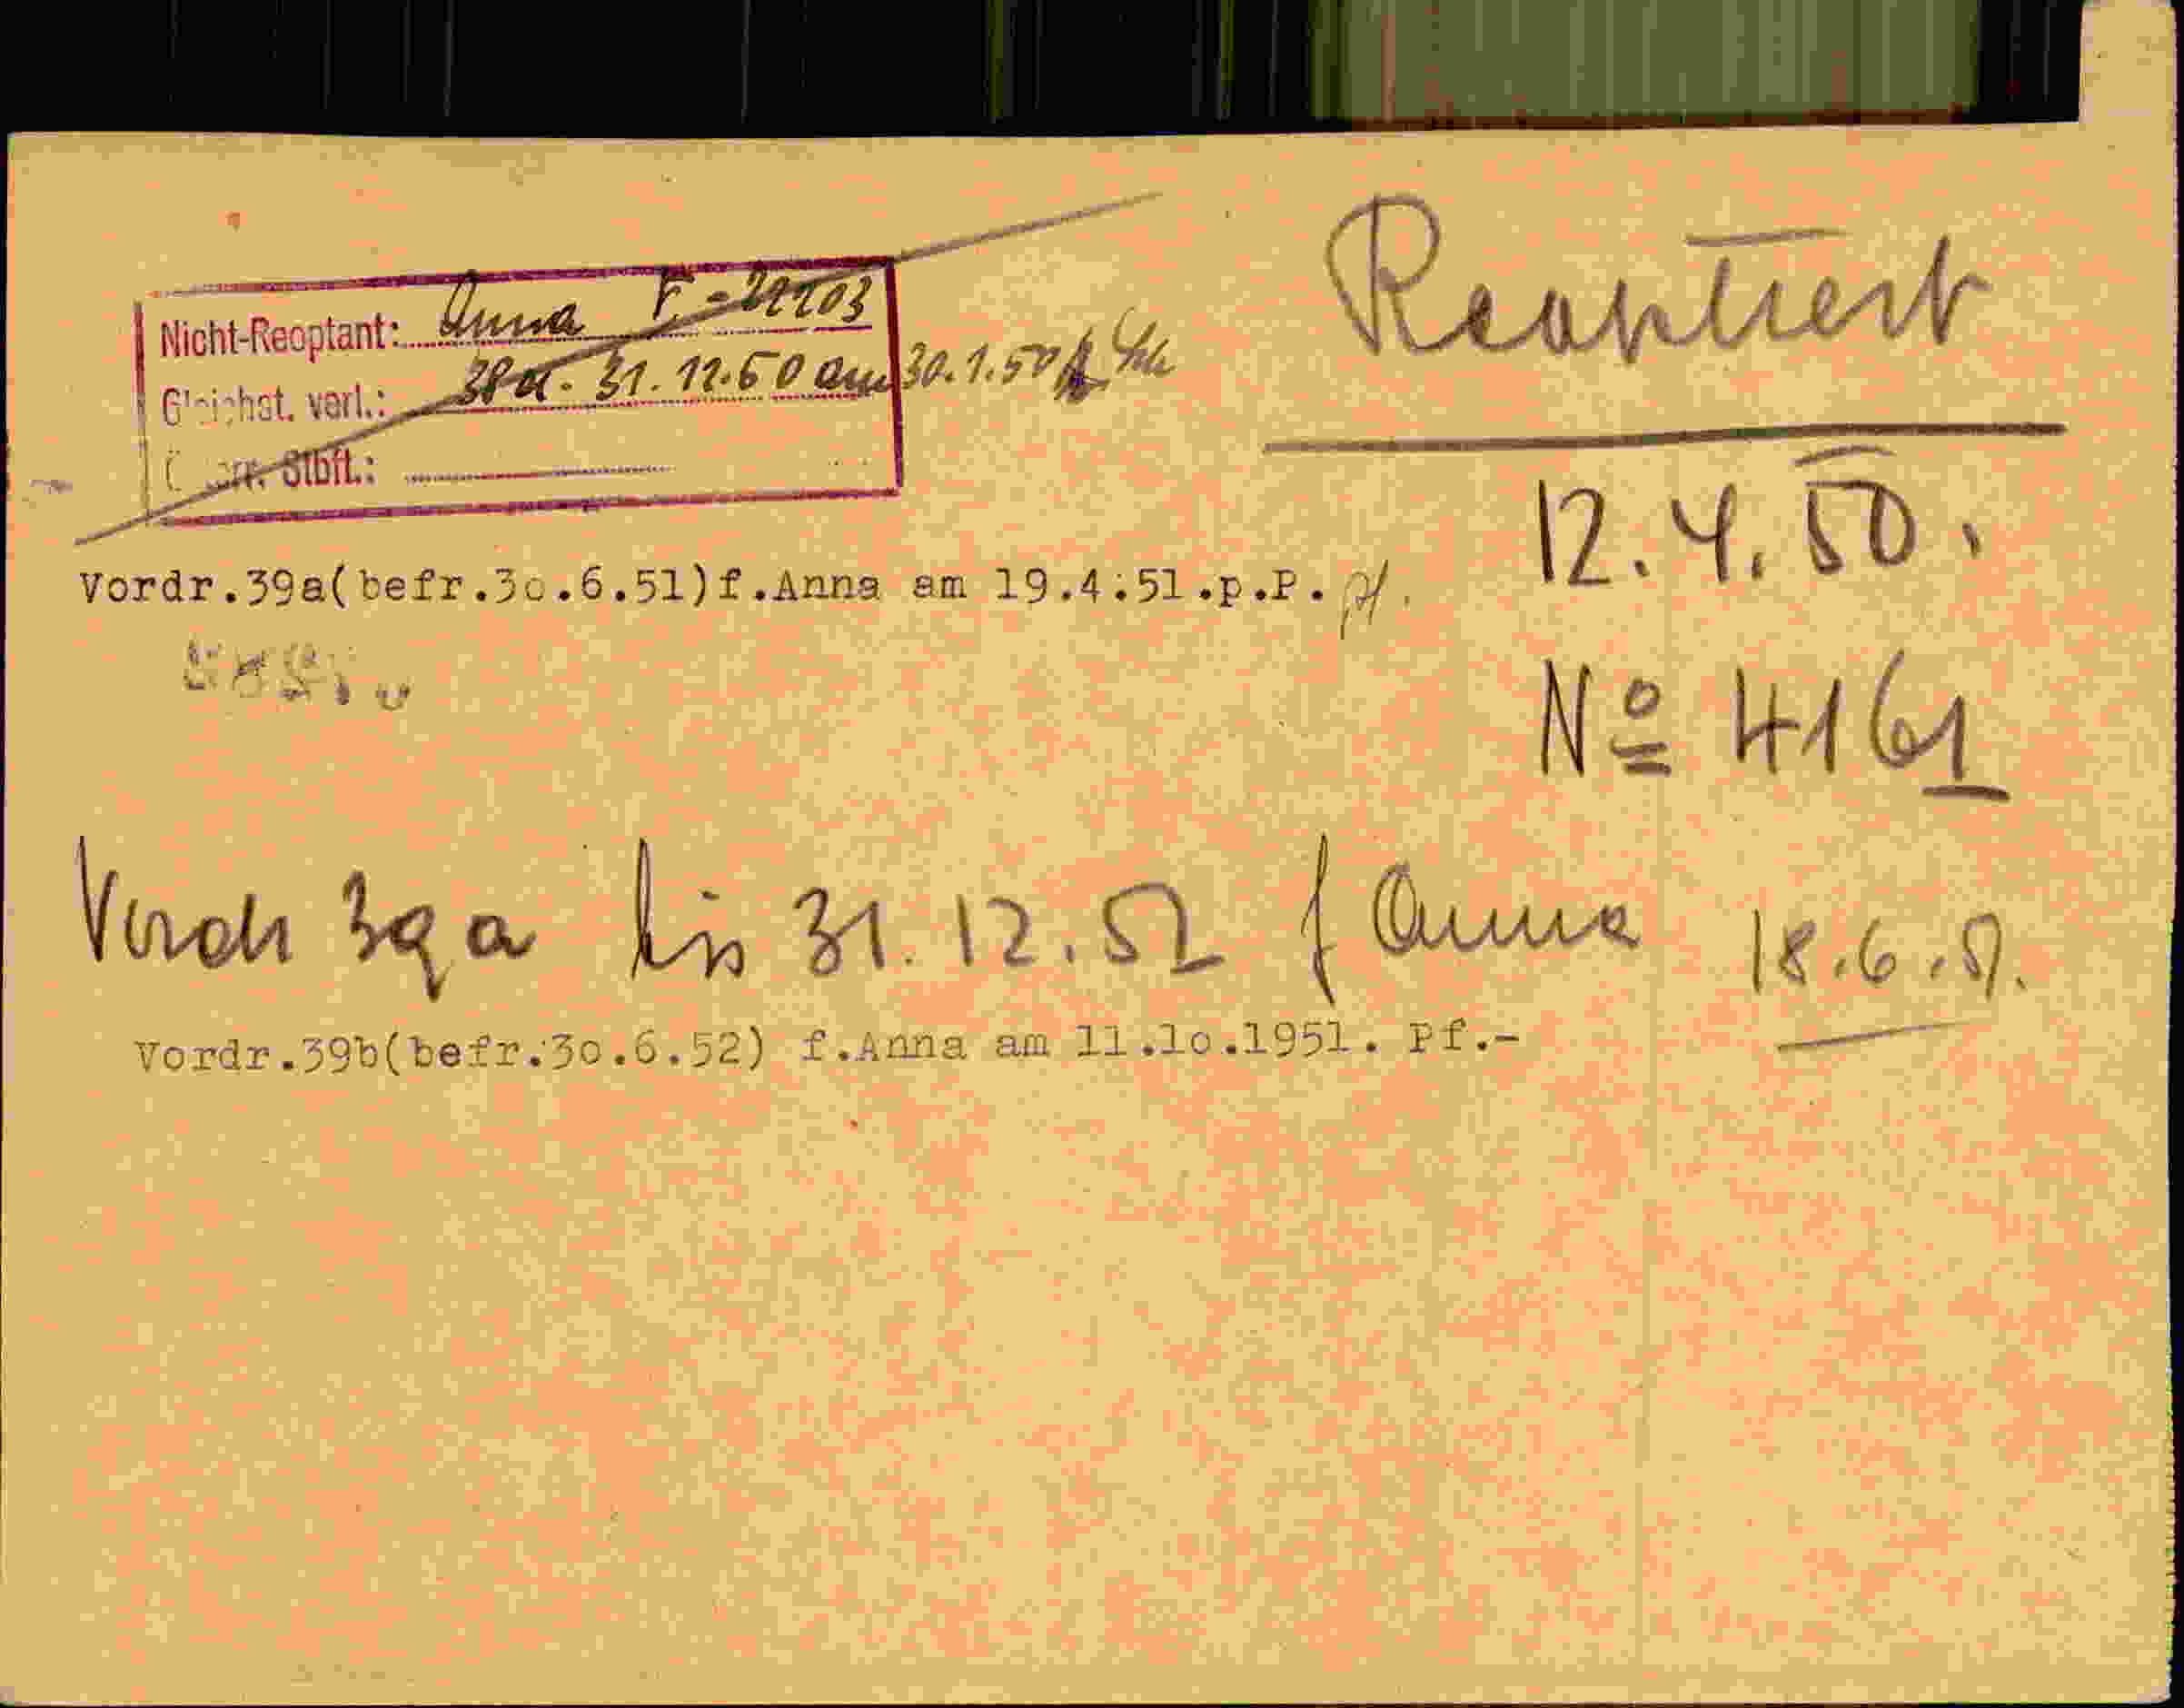 Nicht-Reoptant: Anna F.-21203
Gleichst. verl.: 38a. 31.12.50 am 30.1.50
Stbft.:
Reoptiert
12.4.50.
Vordr.39a(befr.3o.6.51)f.Anna am 19.4.51.p.P.
Nº 4161
Vordr 39a bis 31.12.51 f Anna 18.6.51.
Vordr.39b(befr.3o.6.52) f.Anna am 11.1o.1951. Pf.-